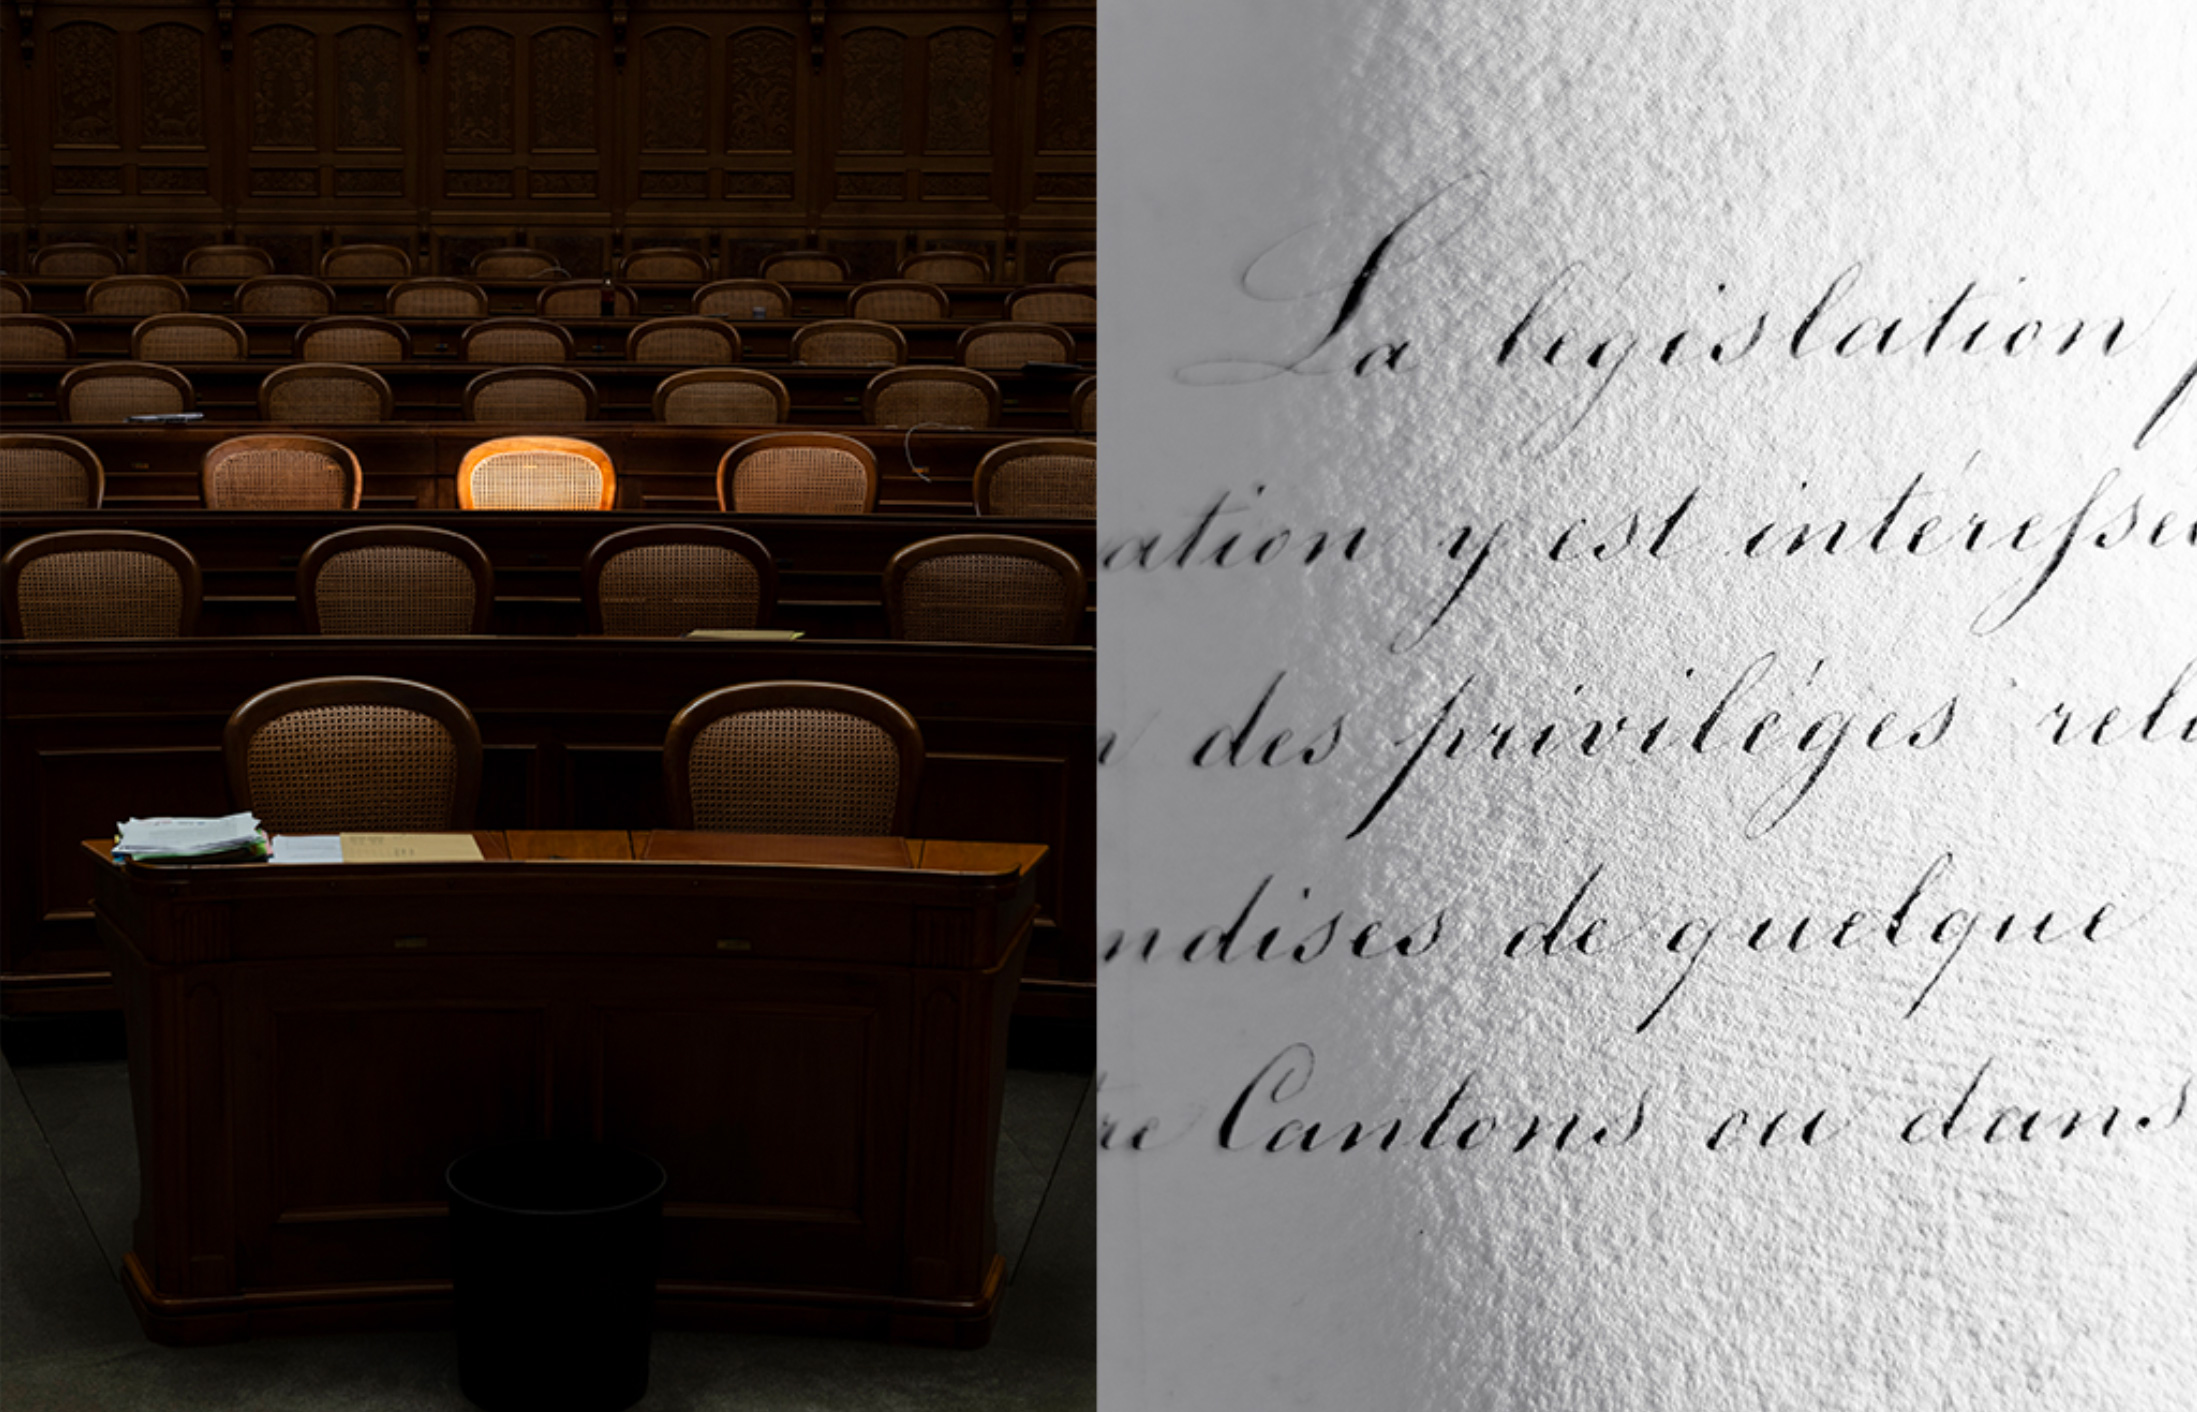 La législation
ation y est intéressé
des priviléges rel
ndises de quelque
re Cantons ou dans